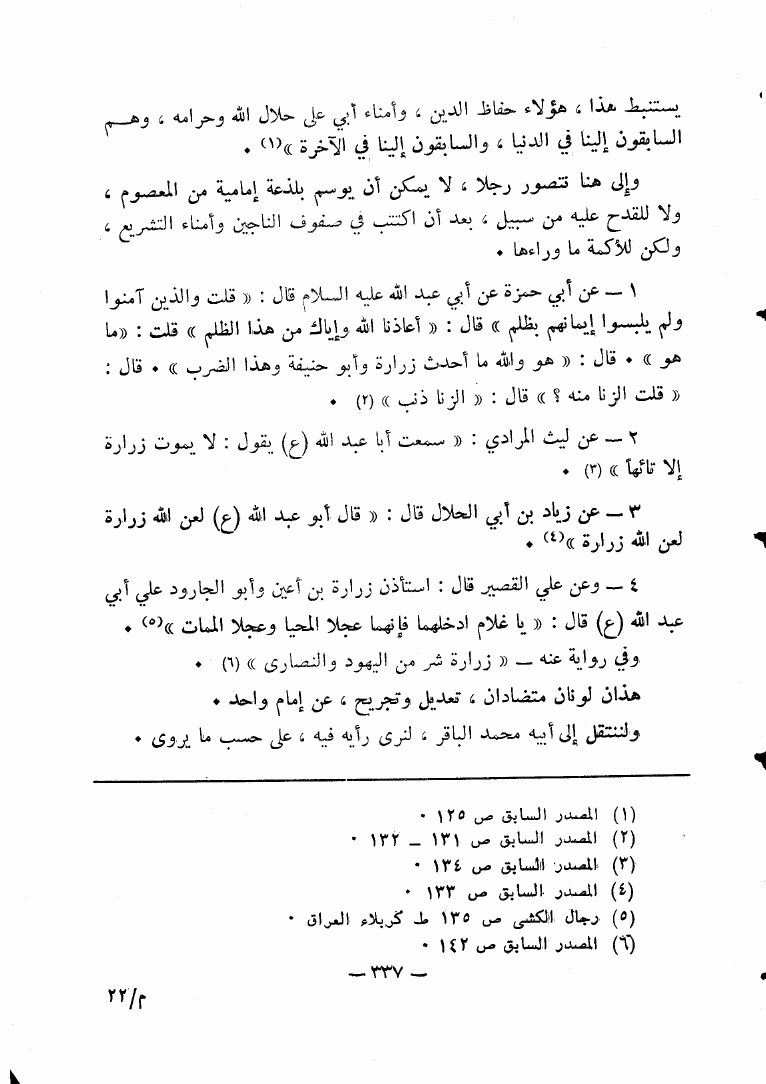 يستنبط هذا ، هؤلاء حفاظ الدين ، وأمناء أبي على حلال الله وحرامه ، وهــم
السابقون إلينا في الدنيا ، والسابقون إلينا في الآخرة »(١) .
وإلى هنا نتصور رجلا ، لا يمكن أن يوسم بلذعة إمامية من المعصوم ،
ولا للقدح عليه من سبيل ، بعد أن اكتتب في صفوف الناجين وأمناء التشريع ،
ولكن للأكمة ما وراءها .
١ ــ عن أبي حمزة عن أبي عبد الله عليه السلام قال : « قلت والذين آمنوا
ولم يلبسوا إيمانهم بظلم » قال : « أعاذنا الله وإياك من هذا الظلم » قلت : «ما
هو » . قال : « هو والله ما أحدث زرارة وأبو حنيفة وهذا الضرب » . قال :
« قلت الزنا منه ؟ » قال : « الزنا ذنب » (٢) .
٢ ــ عن ليث المرادي : « سمعت أبا عبد الله (ع) يقول : لا يموت زرارة
إلا تائهاً » (٣) .
٣ ــ عن زياد بن أبي الحلال قال : « قال أبو عبد الله (ع) لعن الله زرارة
لعن الله زرارة »(٤) .
٤ ــ وعن علي القصير قال : استأذن زرارة بن أعين وأبو الجارود علي أبي
عبد الله (ع) قال : « يا غلام ادخلهما فإنهما عجلا المحيا وعجلا الممات »(٥) .
وفي رواية عنه ــ « زرارة شر من اليهود والنصارى » (٦) .
هذان لونان متضادان ، تعديل وتجريح ، عن إمام واحد .
ولننتقل إلى أبيه محمد الباقر ، لنرى رأيه فيه ، على حسب ما يروى .
(١) المصدر السابق ص ١٢٥ .
(٢) المصدر السابق ص ١٣١ ــ ١٣٢ .
(٣) المصدر السابق ص ١٣٤ .
(٤) المصدر السابق ص ١٣٣ .
(٥) رجال الكشي ص ١٣٥ ط كربلاء العراق .
(٦) المصدر السابق ص ١٤٢ .
ــ ٣٣٧ ــ
م/٢٢